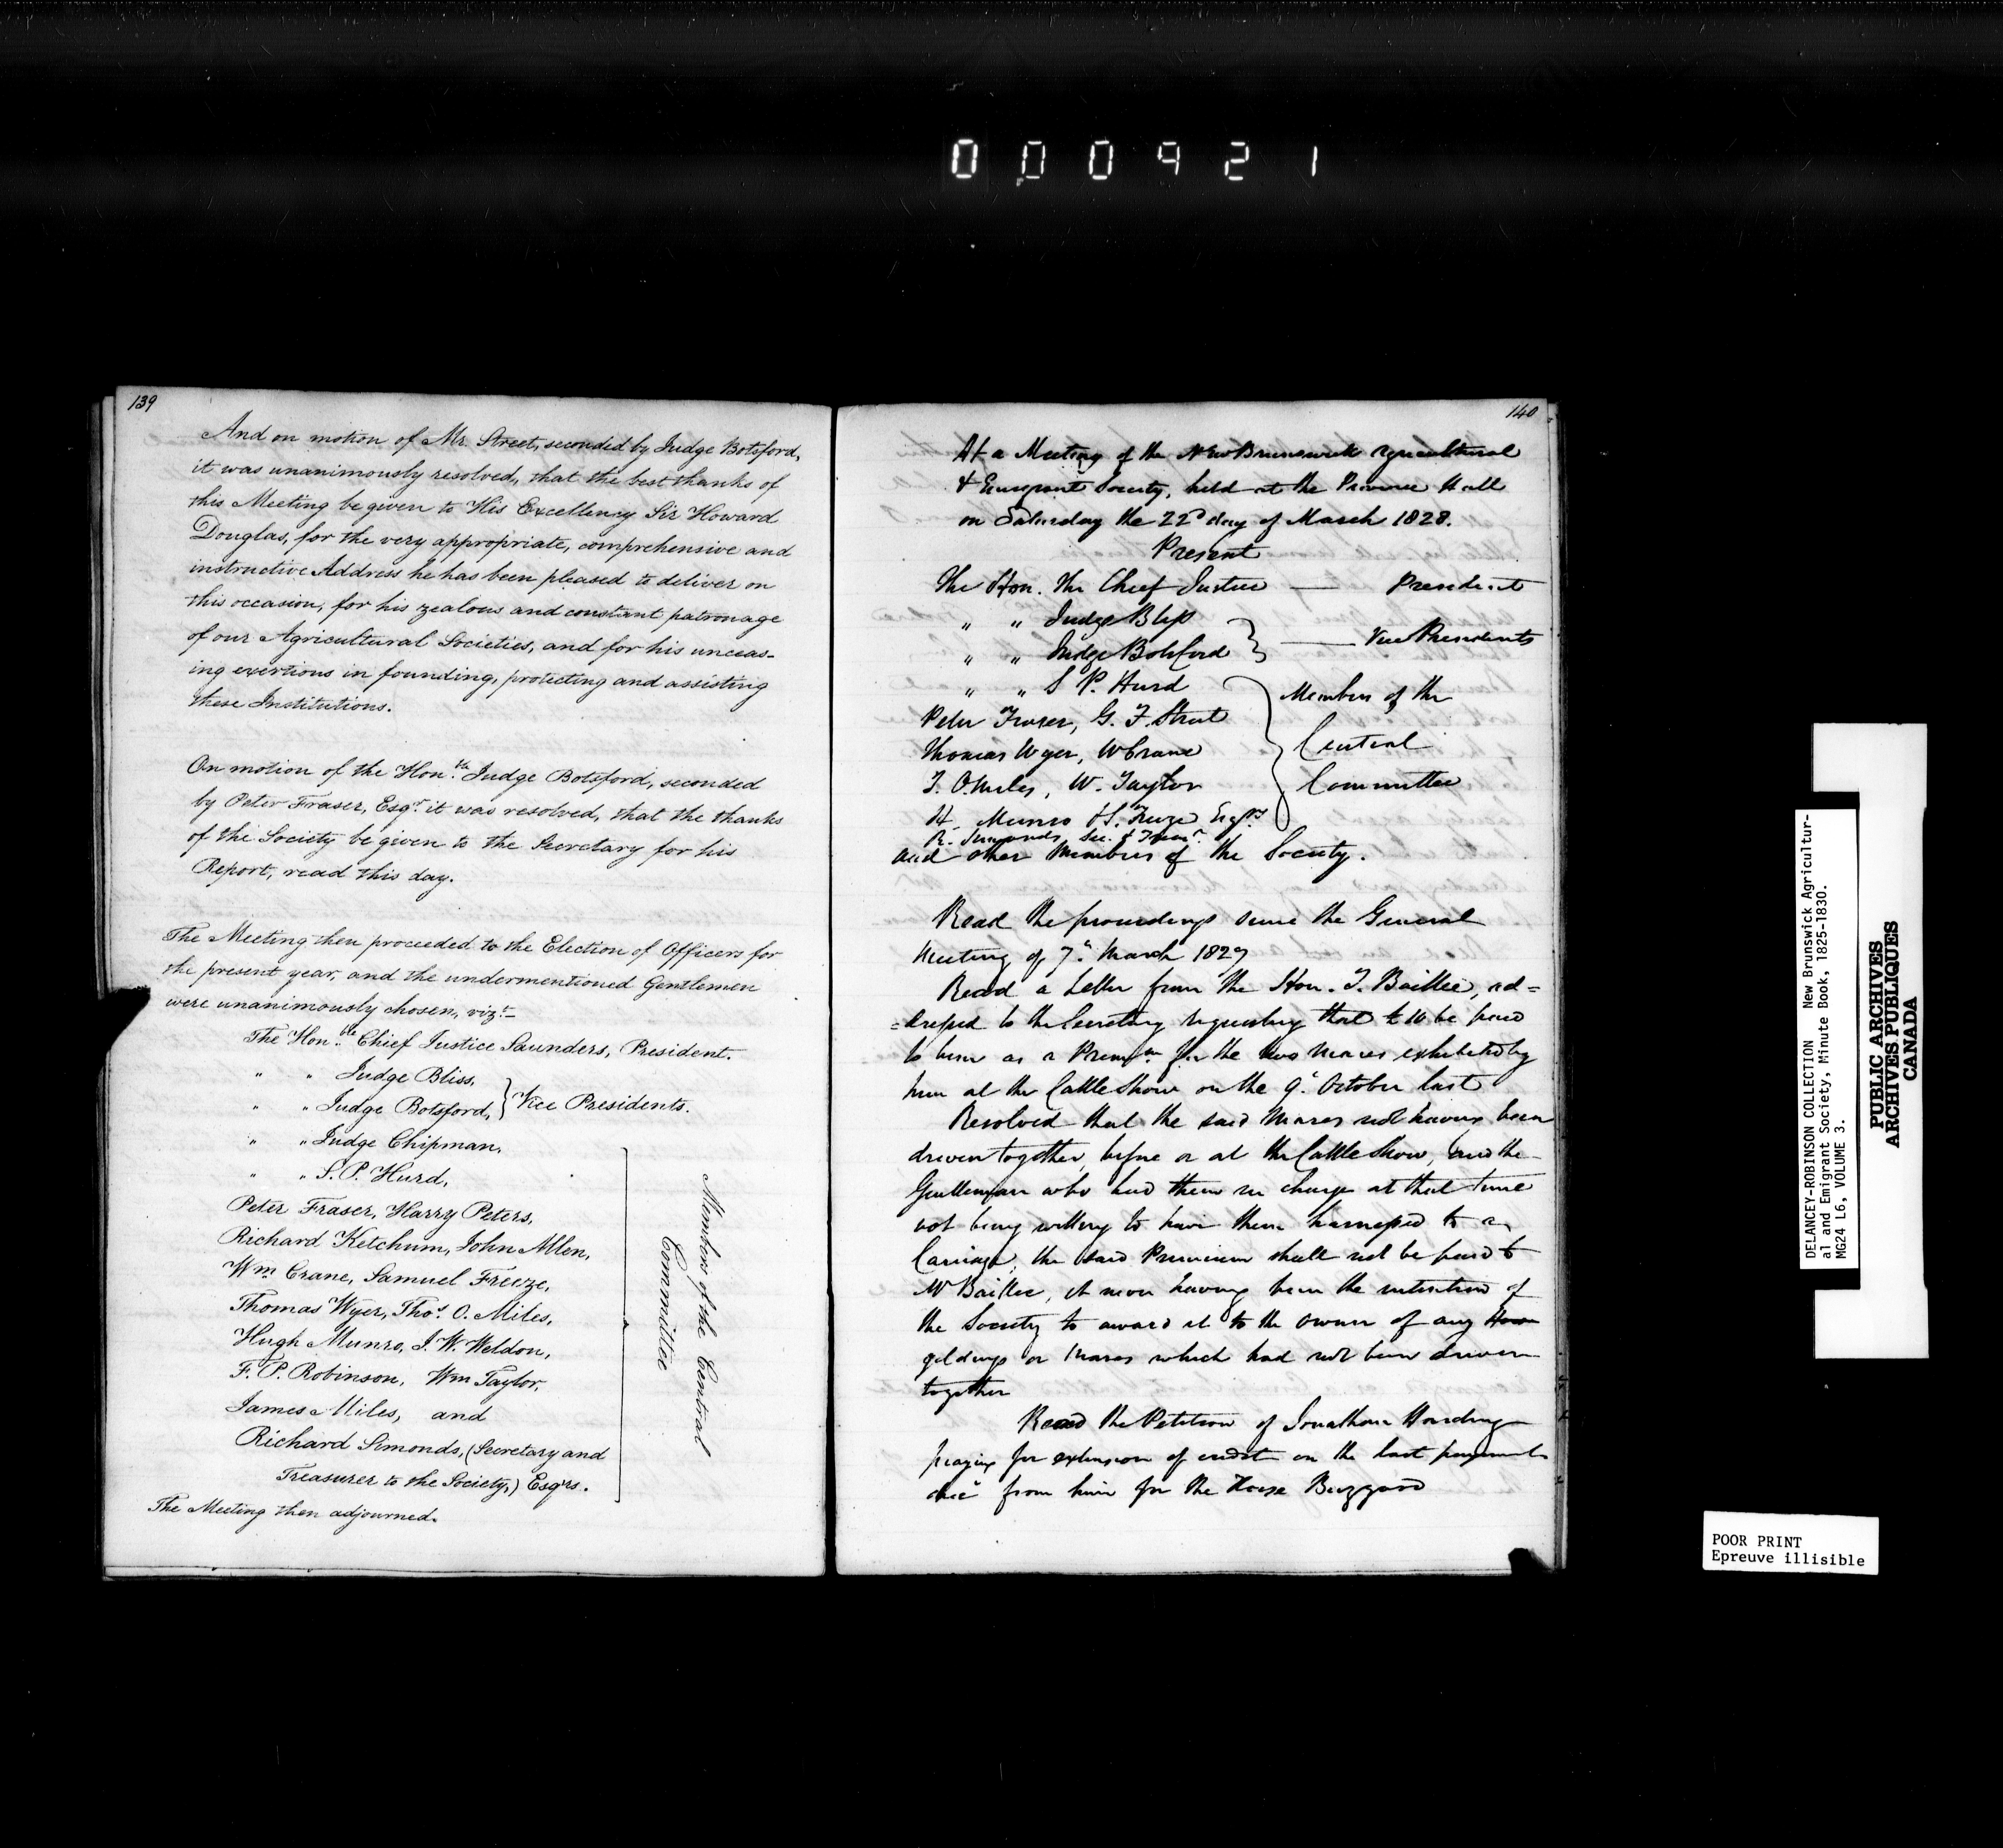 000921
139
And on motion of Mr. Street, seconded by Judge Botsford,
it was unanimously resolved, that the best thanks of
this Meeting be given to His Excellency Sir Howard
Douglas, for the very appropriate, comprehensive and
instructive Address he has been pleased to deliver on
this occasion, for his zealous and constant patronage
of our Agricultural Societies, and for his unceas-
ing exertions in founding, protecting and assisting
these Institutions.
On motion of the Hon.ble Judge Botsford, seconded
by Peter Fraser, Esqr. it was resolved, that the thanks
of the Society be given to the Secretary for his
Report, read this day.
The Meeting then proceeded to the Election of Officers for
the present year, and the undermentioned Gentlemen
were unanimously chosen, vizt.-
The Hon.ble Chief Justice Saunders, President.
" " Judge Bliss,
" " Judge Botsford, } Vice Presidents.
" " Judge Chipman,
" " S. P. Hurd,
Peter Fraser, Harry Peters,
Richard Ketchum, John Allen,
Wm. Crane, Samuel Freeze,
Thomas Wyer, Thos. O. Miles,
Hugh Munro, J. W. Weldon,
F. P. Robinson, Wm Taylor,
James Miles, and
Richard Simonds, (Secretary and
Treasurer to the Society,) Esqrs.
Members of the Central
Committee
The Meeting then adjourned.
140
At a Meeting of the New Brunswick Agricultural
& Emigrant Society, held at the Province Hall
on Saturday the 22d day of March 1828.
Present
The Hon. the Chief Justice — President
" " Judge Bliss
" " Judge Botsford } — Vice Presidents
" " S P. Hurd
Peter Fraser, G. F. Street
Thomas Wyer, W Crane
T. O. Miles, W. Taylor
H. Munro & S. Freeze Esqrs
Members of the
Central
Committee
R. Simonds, Sec. & Treasr.
and other Members of the Society.
Read the proceedings since the General
Meeting of 7th March 1827
Read a Letter from the Hon. T. Baillie, ad=
=dressed to the Secretary requesting that £10 be paid
to him as a Premm for the two Mares exhibited by
him at the Cattle Show on the 9th October last
Resolved that the said Mares not having been
driven together, before or at the Cattle Show, and the
Gentleman who had them in charge at that time
not being willing to have them harnessed to a
Carriage, the said Premium shall not be paid to
Mr Baillie, it never having been the intention of
the Society to award it to the owner of any
geldings or Mares which had not been driven
together
Read the Petition of Jonathan Harding
praying for extension of credit on the last payment
due from him for the Horse Buzzard
DELANCEY-ROBINSON COLLECTION New Brunswick Agricultur-
al and Emigrant Society, Minute Book, 1825-1830.
MG24 L6, VOLUME 3.
PUBLIC ARCHIVES
ARCHIVES PUBLIQUES
CANADA
POOR PRINT
Epreuve illisible